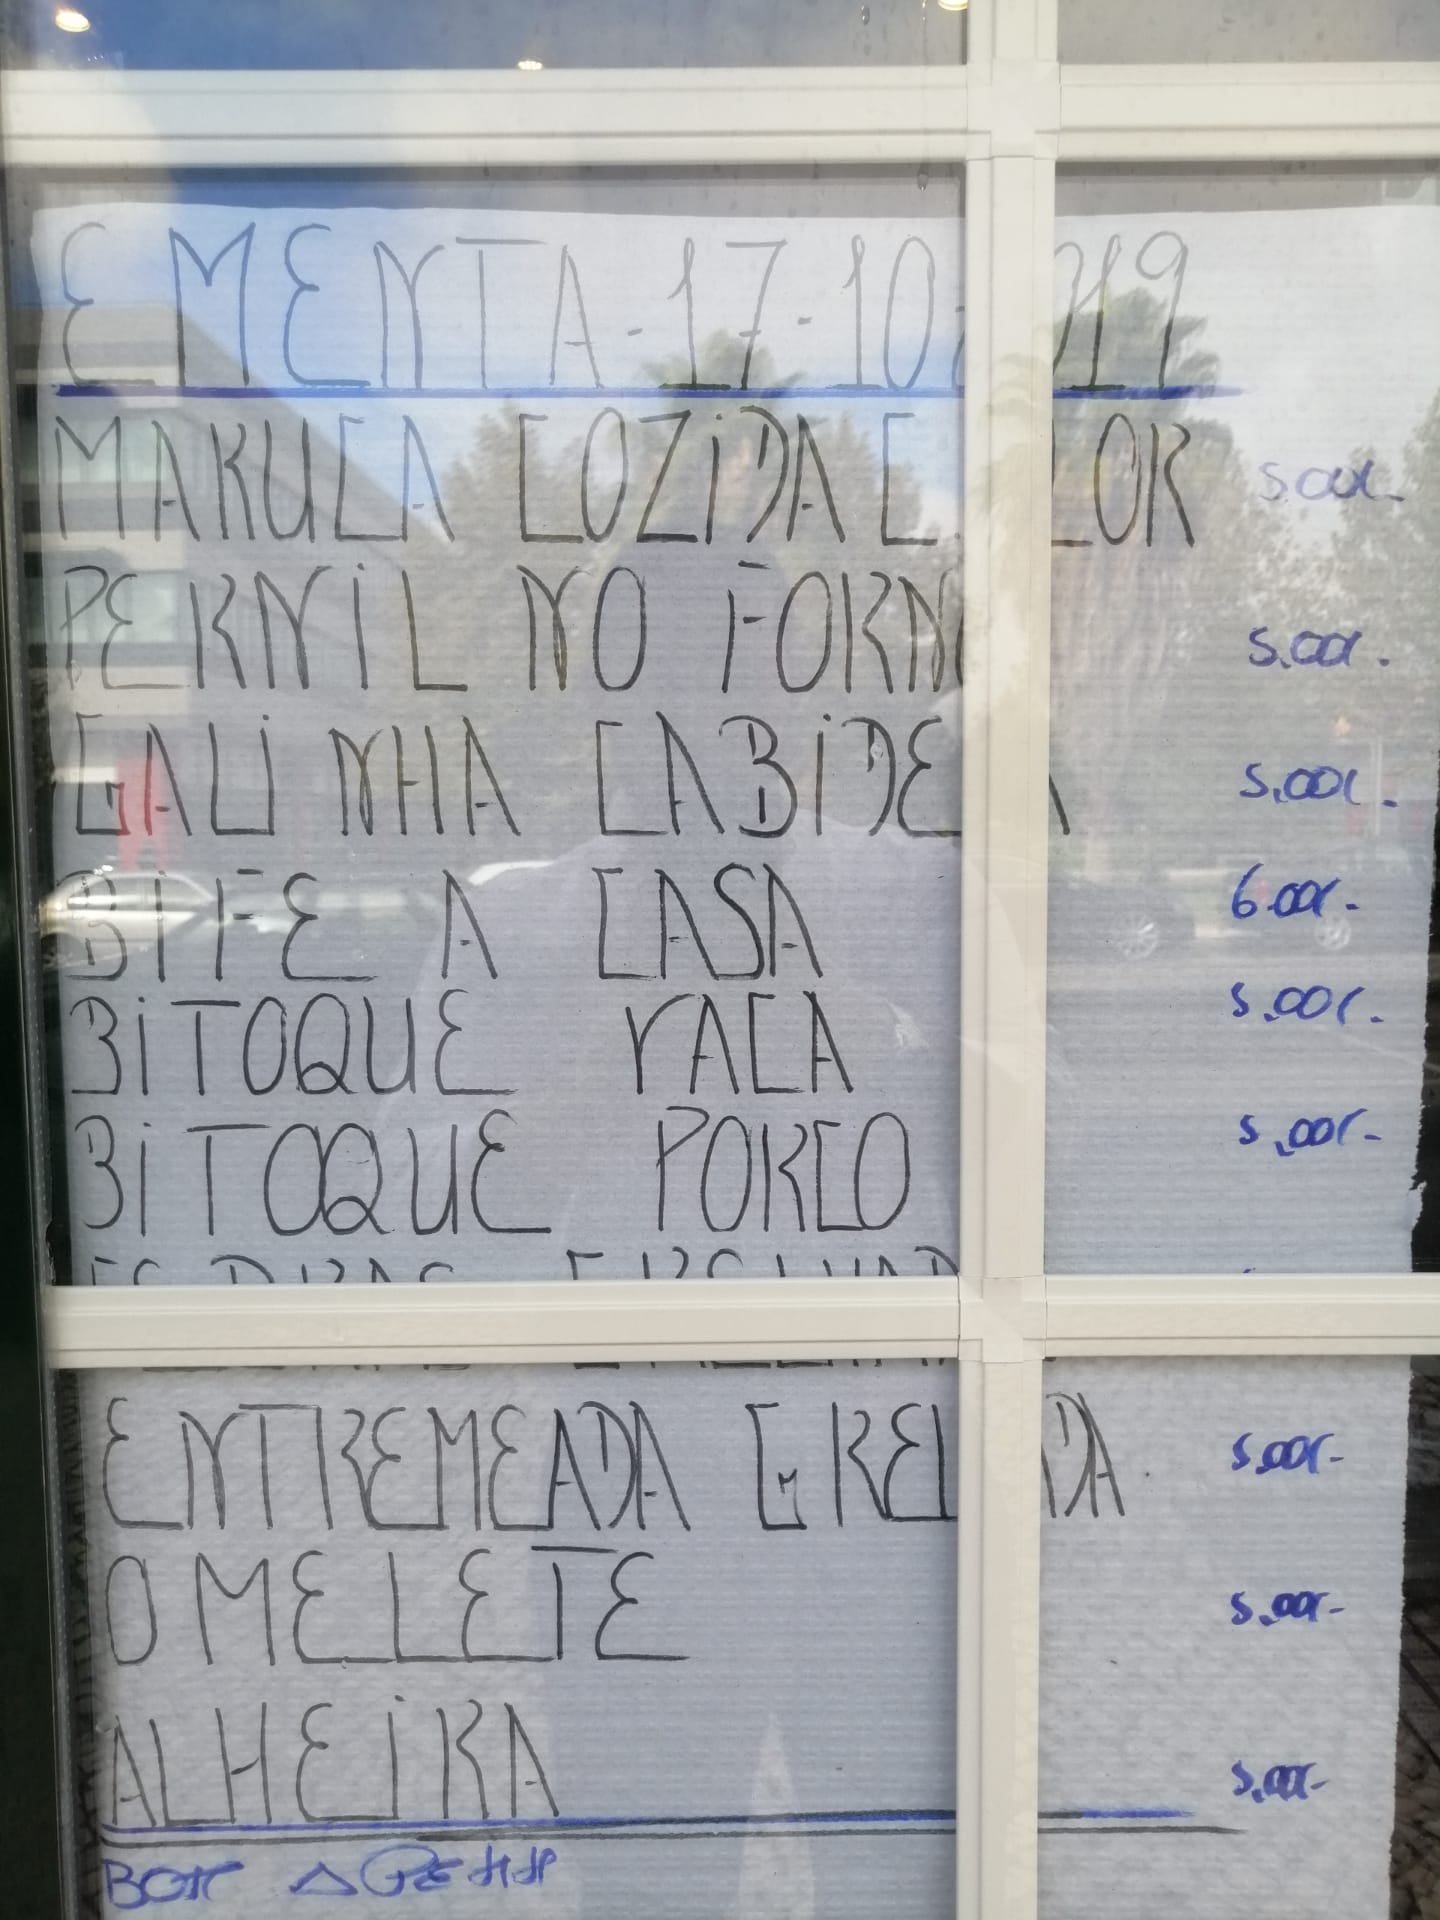 EMENTA-17-10-2019
MARUCA COZIDA C. 5.00€
PERNIL NO FORNO 5.00€.
GALINHA CABIDELA 5.00€.
BIFE A CASA 6.00€-
BITOQUE VACA 5.00€.
BITOQUE PORCO 5.00€-
ENTREMEADA GRELADA 5.00€-
OMELETE 5.00€-
ALHEIRA 5.00€-
BOM